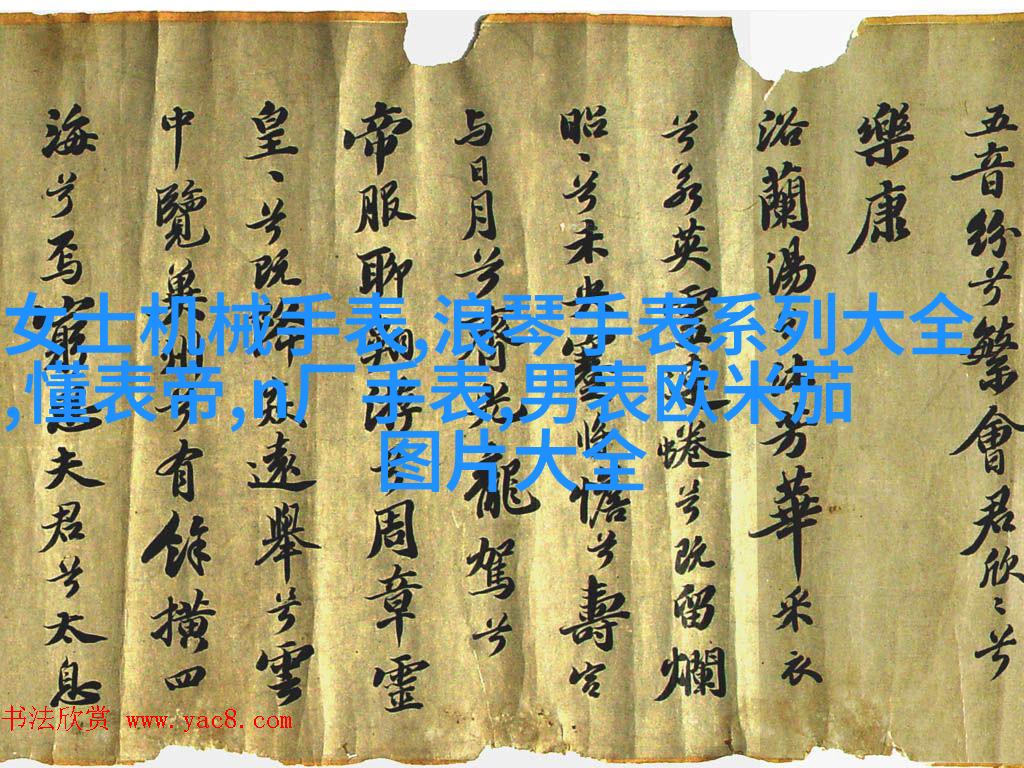 五音紛兮繁會君欣〻兮
樂康
浴蘭湯兮沐芳華采衣
兮若英靈連蜷兮既留爛
昭〻兮未央蹇將憺兮壽宮
与日月兮齊光龍駕兮
帝服聊翱游兮周章靈
皇〻兮既降遠舉兮雲
中覽冀州兮有餘横四
海兮焉窮思夫君兮太息
女士机械手表,浪琴手表系列大全
,懂表帝,n厂手表,男表欧米茄
图片大全
书法欣赏 www.yac8.com